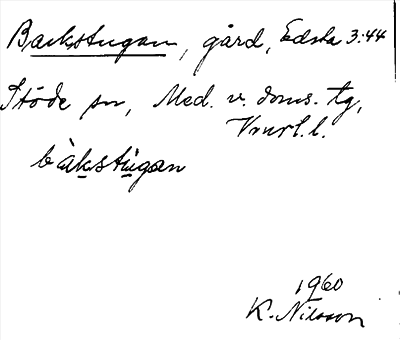 Backstugan, gård, Edsta 3:44
Stöde sn, Med. v. doms. tg,
Vnrl. l.
bàkstùgan
1960
K. Nilsson